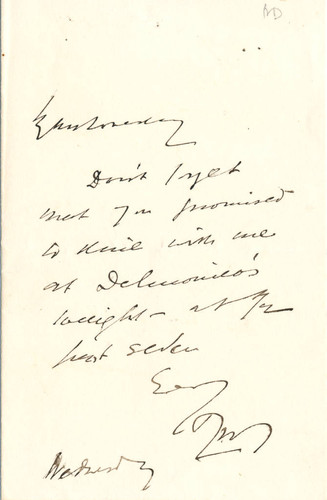 Don't forget
that you promised
to dine with me
at Delmonico's
tonight - at
past seven
Wednesday